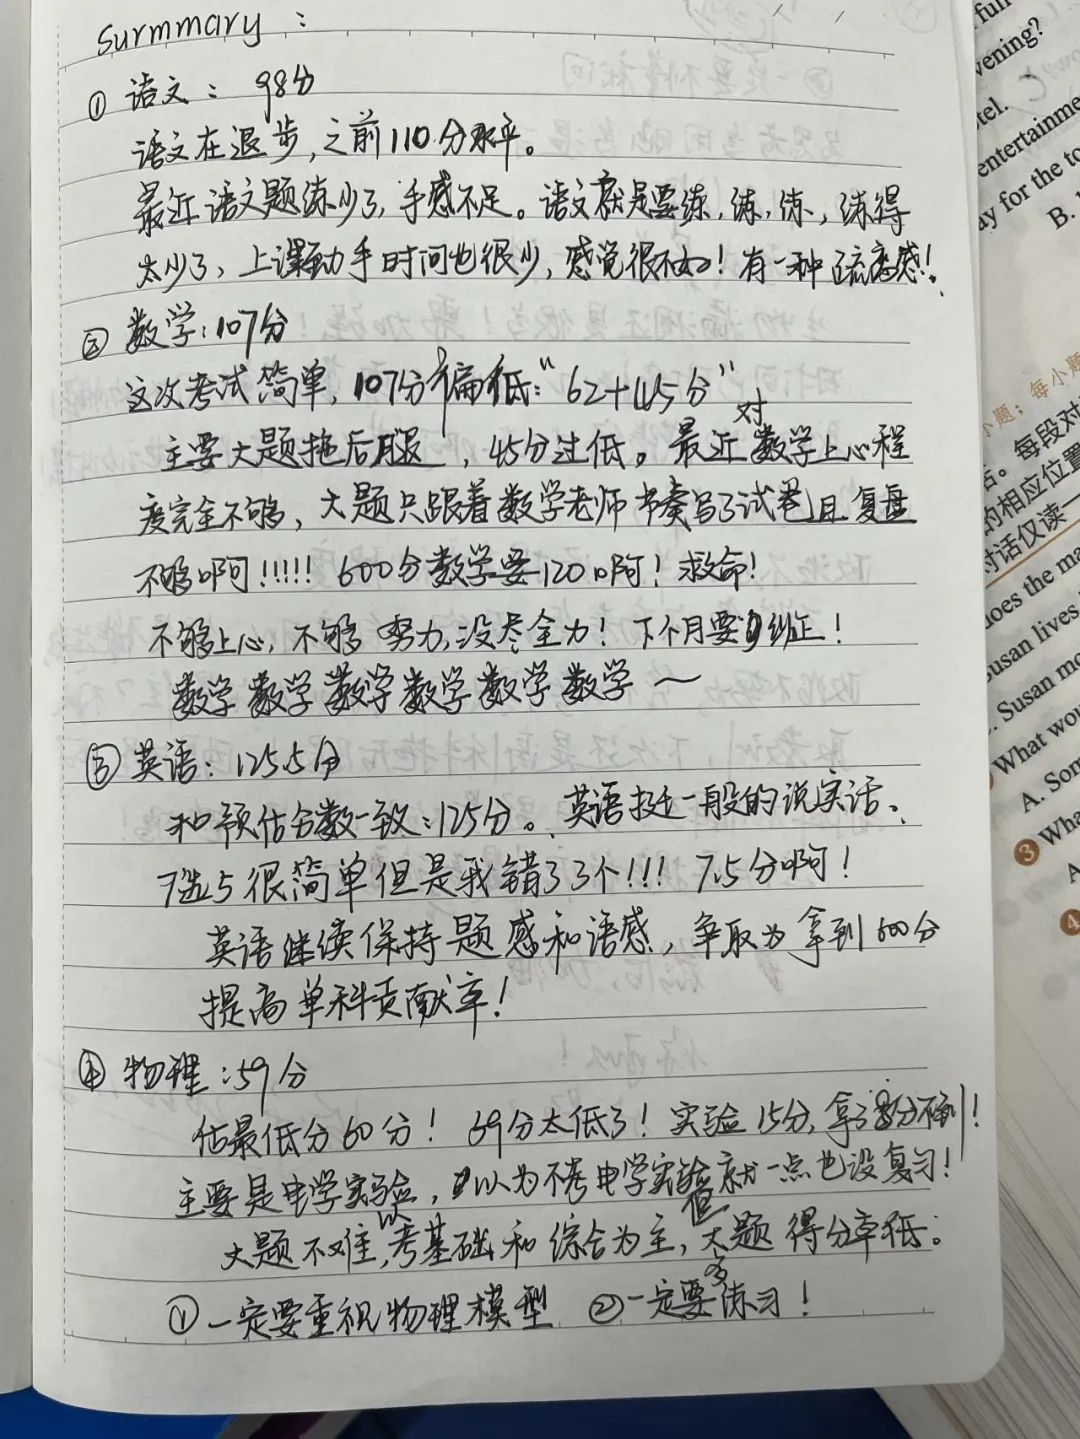 Surmmary :
① 语文： 98分
语文在退步,之前110分水平。
最近语文题练少了,手感不足。语文就是要练,练,练,练得
太少了,上课动手时间也很少,感觉很不好！有一种疏离感！
② 数学:107分
这次考试简单,107分偏低:"62+45分"
主要大题拖后腿,45分过低。最近对数学上心程
度完全不够,大题只跟着数学老师节奏写了试卷且复盘
不够啊!!!!! 600分数学要120啊! 救命!
不够上心,不够努力,没尽全力! 下个月要纠正!
数学数学数学数学数学数学~
③ 英语: 125.5分
和预估分数一致:125分。英语挺一般的说实话、
7选5很简单但是我错了3个!!! 7.5分啊!
英语继续保持题感和语感,争取为拿到600分
提高单科贡献率!
④ 物理:59分
估最低分60分! 59分太低了! 实验15分,拿了8分不到!
主要是电学实验,以为不考电学实验就一点也没复习!
大题不难,以考基础和综合为主,但大题得分率低:
①一定要重视物理模型 ②一定要多练习!
full
vening?
tel.
entertainme
ay for the to
B.
小题；每小题
话。每段对
的相应位置
对话仅读一
does the ma
Susan lives
. Susan mo
What wou
A. Som
3 Wha
A
4